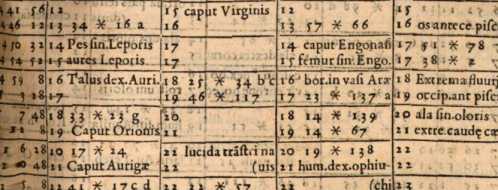 41 56 12 | 15 caput Virginis | 12 | 15
46 12 13 34 * 16 a | 16 | 13 57 * 66 | 16 os antece. pisc
50 32 14 Pes sin. Leporis | 17 | 14 caput Engonasi | 17 51 * 78
15 aures Leporis | 17 | 15 fémur sin. Engo. | 17 38 *
59 8 16 Talus dex. Auri. | 18 25 * 34 b c | 16 bor. in vasi Aræ | 18 Extrema fluui
3 18 17 | 19 46 * 117 | 17 23 * 137 a | 19 occip. ant pisc
7 48 18 33 * 23 g | 20 | 18 14 * 139 | 20 ala sin. oloris
8 19 Caput Orionis | 21 | 19 14 * 67 | 21 extre. caudę
6 28 20 17 * 24 | 21 lucida trãst. i na | 20 19 * 138 | 22
48 21 Caput Aurigæ | 22 (uis | 21 hum. dex. ophiu- | 22
8 12 41 * 17 c d | 22 * 57 | (chi